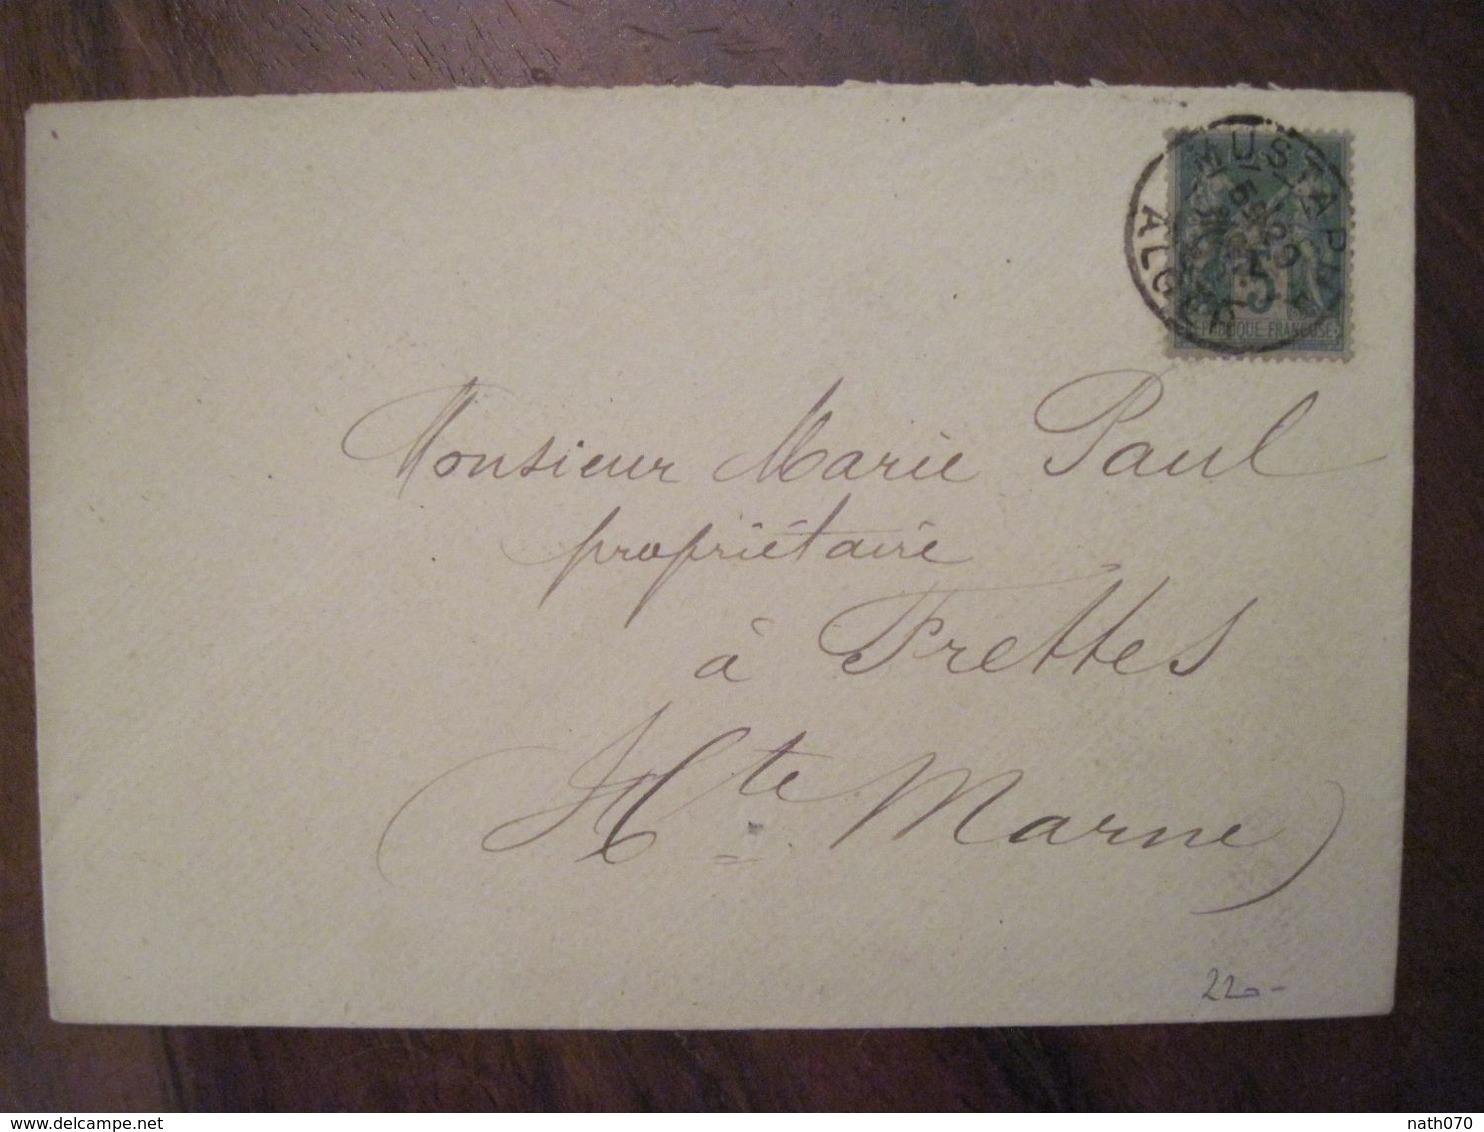 MUSTAPHA
ALGER
5
REPUBLIQUE FRANCAISE
Monsieur Marie Paul
propriétaire
à Frettes
(Hte Marne)
220-
www.delcampe.net
nath070